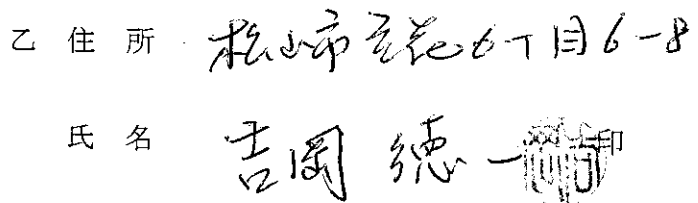 乙 住 所 松山市立花6丁目6-8
氏 名 吉岡 徳一 印